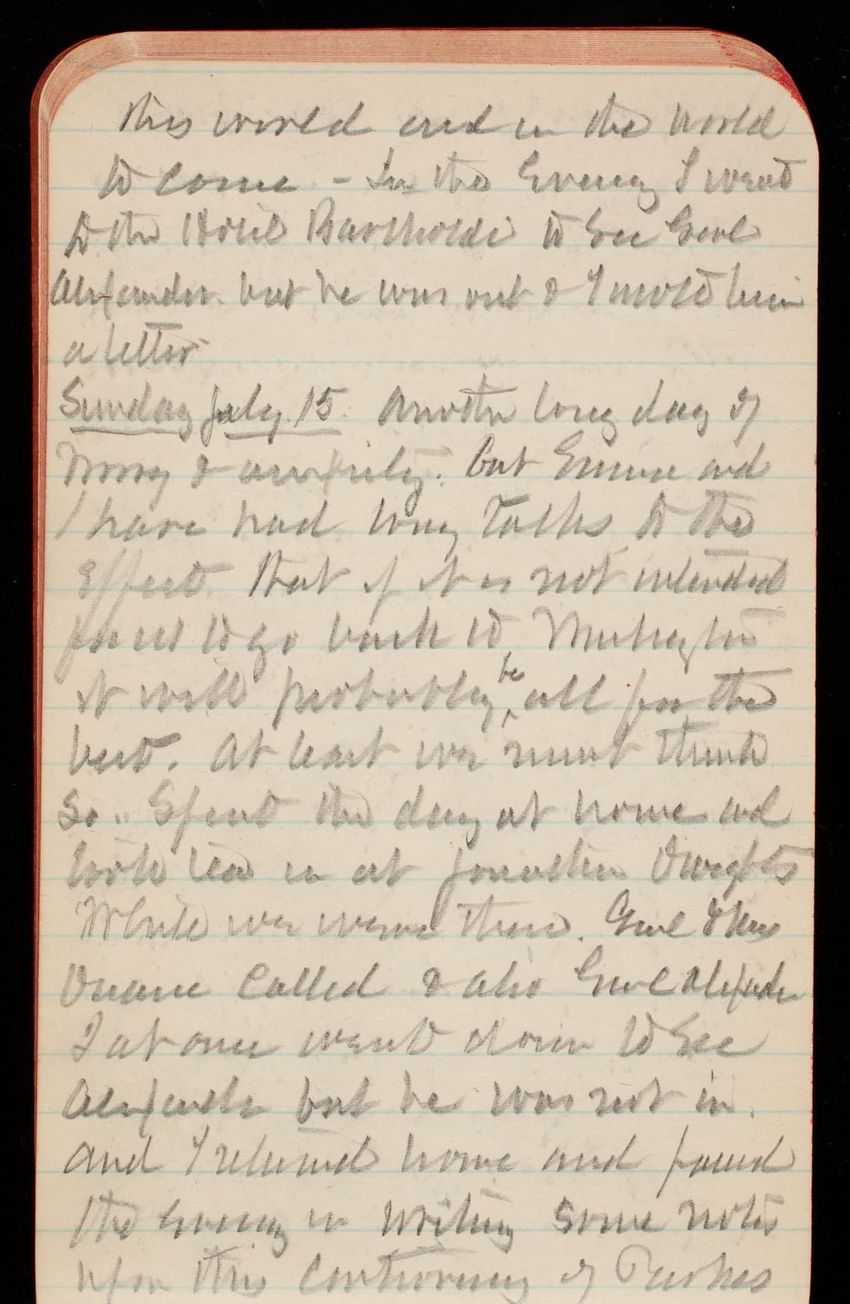 this world and in the world
to come - In the Evening I went
to the Hotel Bartholdi to See Genl
Alexander. but he was out & I wrote him
a letter
Sunday July 15. Another long day of
worry & anxiety. but Emma and
I have had long Talks to the
Effect That if it is not intended
for us to go back to Washington
it will probably be all for the
best. At least we must think
so. Spent the day at home and
took tea in at Jonathan Dwights
While we were there. Genl & Mrs
Duane Called & also Genl Alexander
I at once went down to See
Alexander but he was not in.
and I returned home and passed
the Evening in writing some notes
upon this Controversy of Parkes